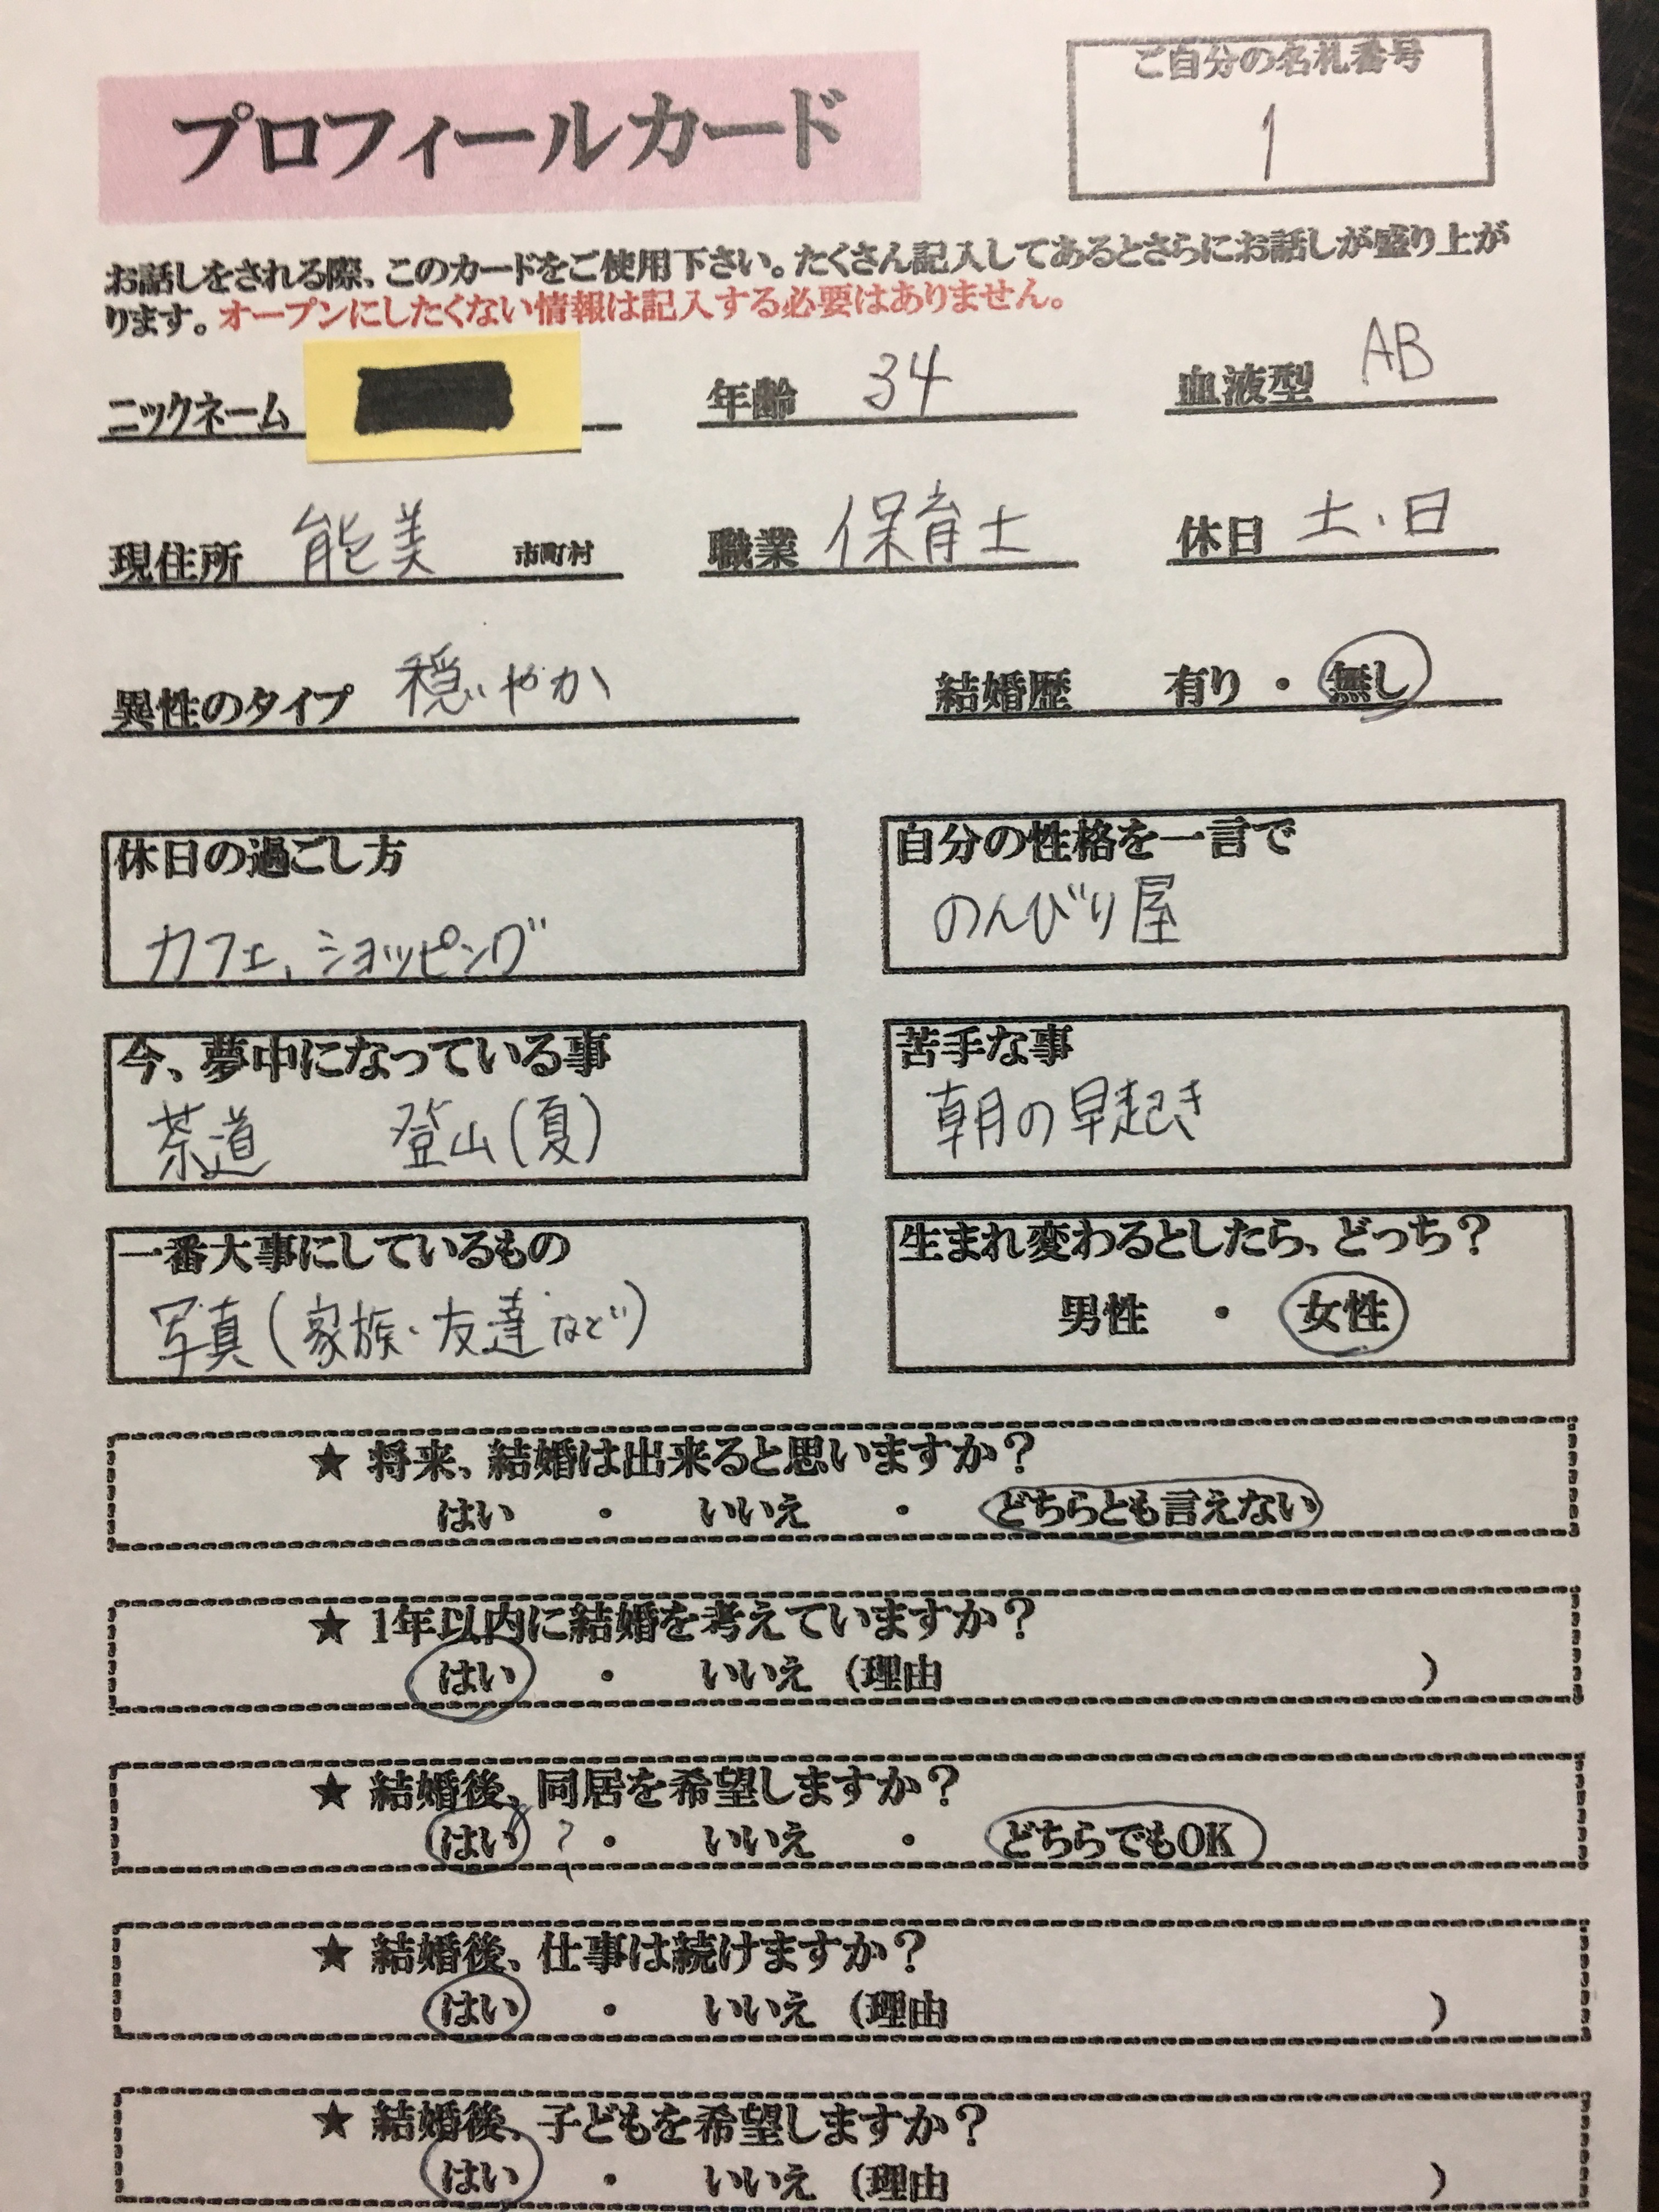 プロフィールカード
ご自分の名札番号
1
お話しをされる際、このカードをご使用下さい。たくさん記入してあるとさらにお話しが盛り上が
ります。オープンにしたくない情報は記入する必要はありません。
ニックネーム 年齢 34 血液型 AB
現住所 能美 市町村 職業 保育士 休日 土・日
異性のタイプ 穏やか 結婚歴 有り・無し
休日の過ごし方
カフェ、ショッピング
自分の性格を一言で
のんびり屋
今、夢中になっている事
茶道 登山(夏)
苦手な事
朝の早起き
一番大事にしているもの
写真(家族・友達など)
生まれ変わるとしたら、どっち?
男性・女性
★ 将来、結婚は出来ると思いますか?
はい・いいえ・どちらとも言えない
★ 1年以内に結婚を考えていますか?
はい・いいえ(理由 )
★ 結婚後、同居を希望しますか?
はい?・いいえ・どちらでもOK
★ 結婚後、仕事は続けますか?
はい・いいえ(理由 )
★ 結婚後、子どもを希望しますか?
はい・いいえ(理由 )